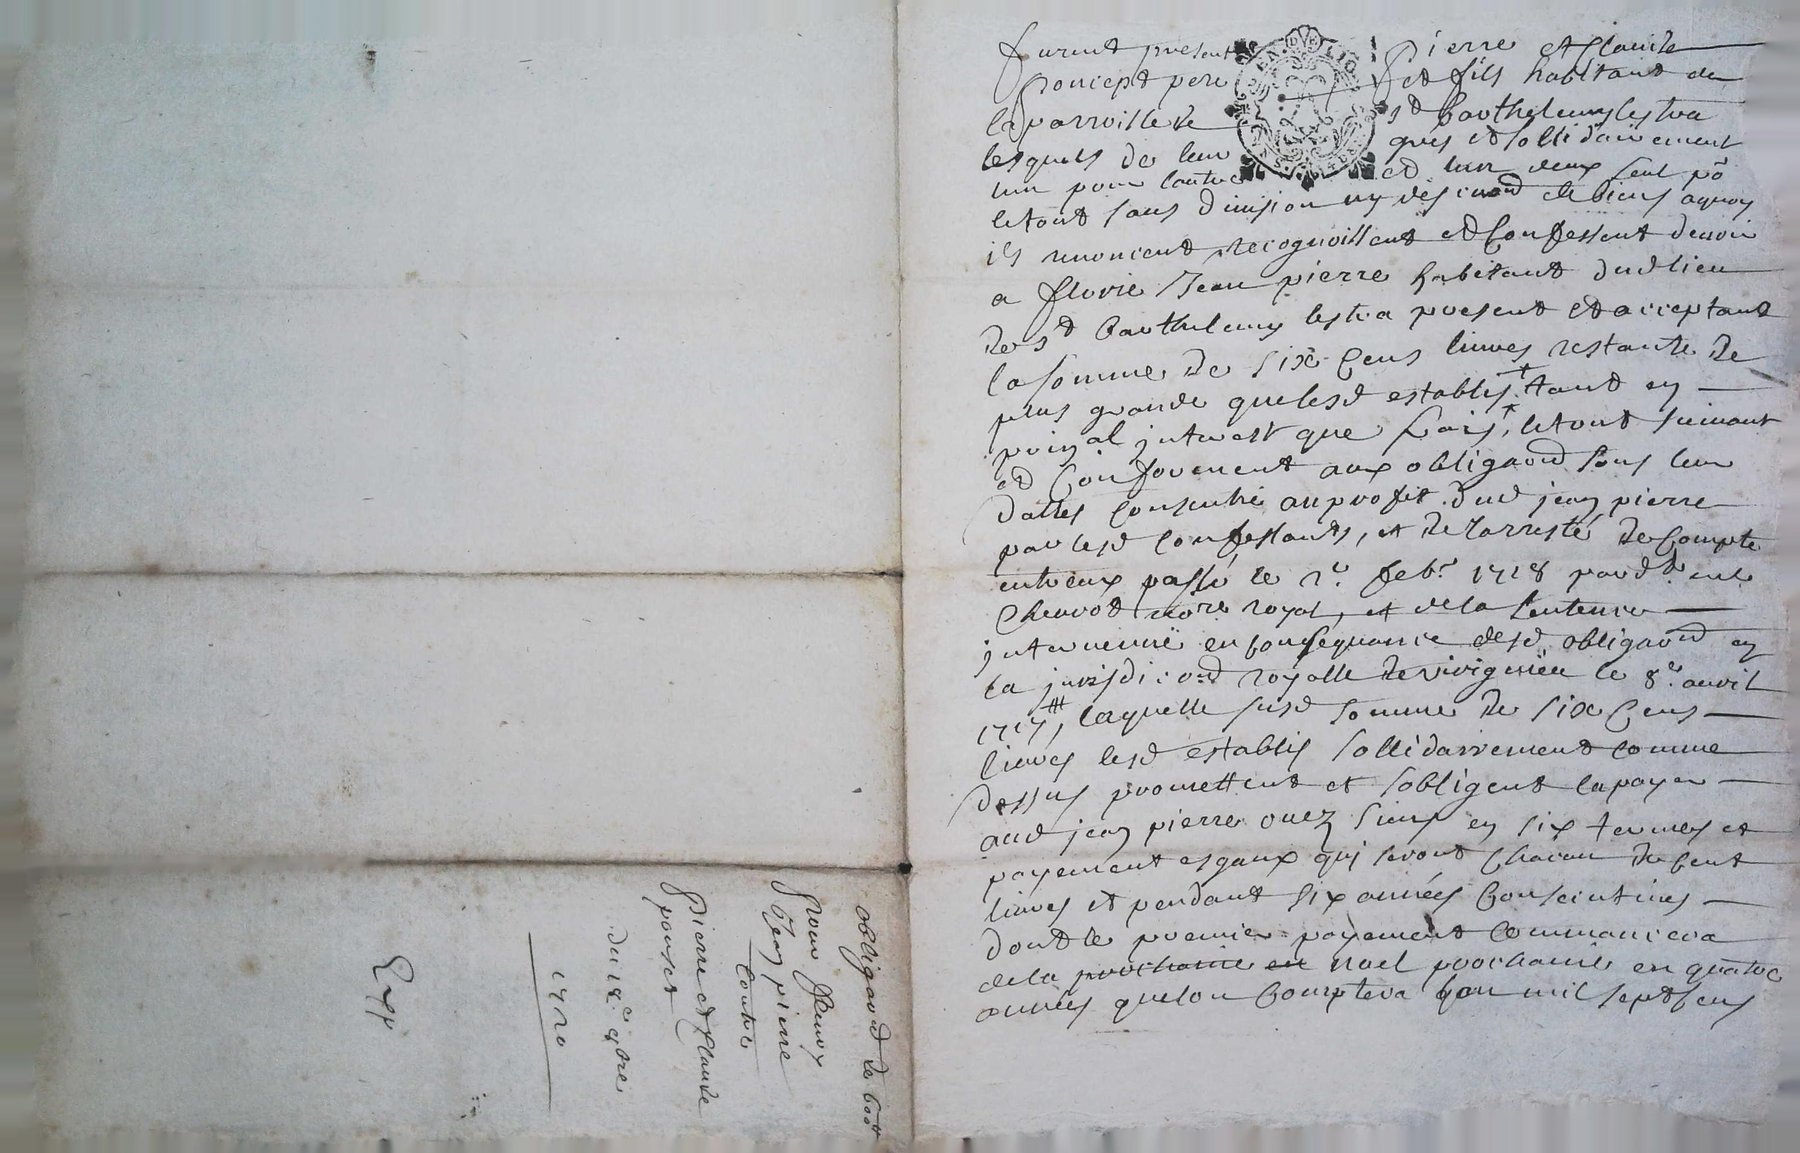 furent presents Pierre et Claude
Poncept pere et fils habitant de
la parroisse de St Barthelemy lestra
lesquels de leur grés et sollidairement
lun pour lautre et lun deux seul po
le tout sans division ny discuond de biens aquoy
ils renoncent recognoissent et Confessent devoir
a fleurie Jean pierre habitant dud lieu
de St Barthelemy lestra present et acceptant
la somme de six Cens livres restante de
plus grande que lesd establis tant en
prinal interest que frais, le tout suivant
et Conforement aux obligaond sous leur
dattes consentüe au profit dud jean pierre
par lesd confessants, et de larresté de Compte
entreux passé le febr 1718 pard
Chauvot nore royal, et de la sentence
intervenuë en consequance desd obligaond en
la jurisdicond royalle de le 8e avril
1717, laquelle susd somme de six Cens
livres lesd establis sollidairement comme
dessus promettent et sobligent la payer
aud jean pierre ou ez siens en six termes et
payement esgaux qui seront Chacun de Cent
livres et pendant six années Consecutives
dont le premier payement Commancera
de la prochaine en noel prochaine en quatre
années que lon Comptera mil sept Cens
obligaond de 600#
pour fleury
Jean pierre
Contre
Pierre et Claude
ponset
du 18e 9bre
1720
Exp